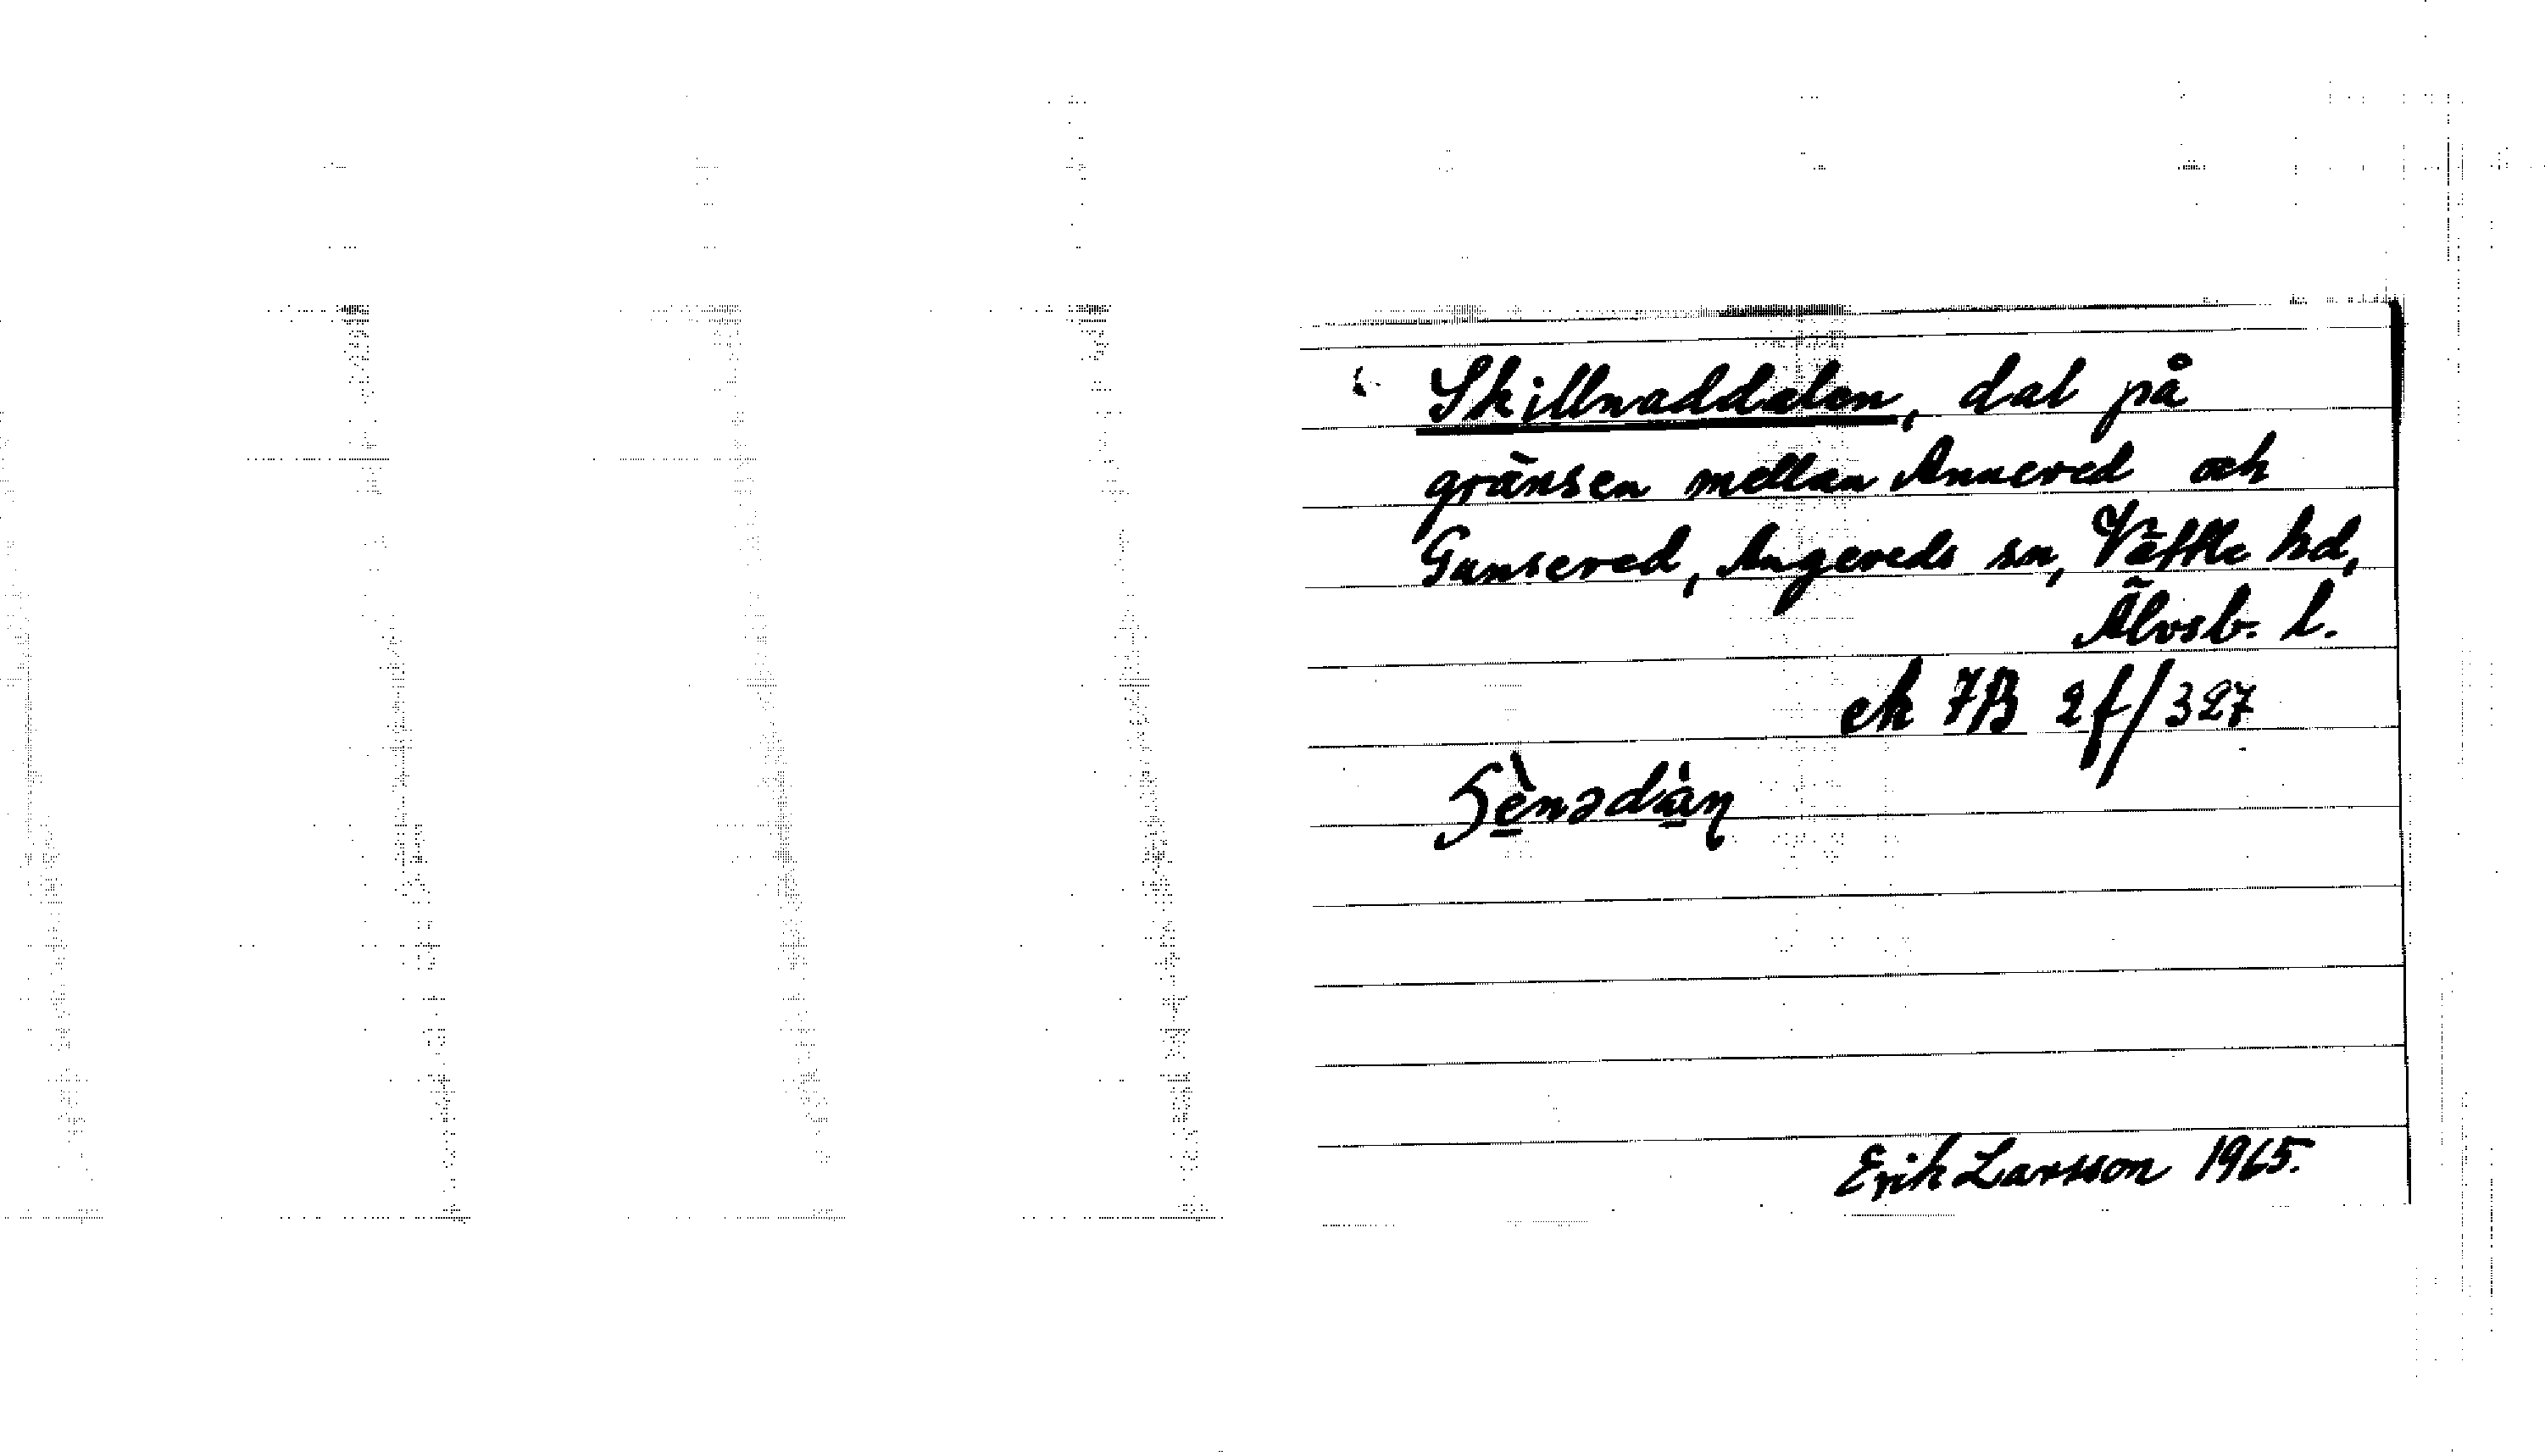 Skillnaddalen, dal på
gränsen mellan Annered och
Gunsered, Angereds sn, Vättle hd,
Älvsb. l.
ek 7B 2f/327
Erik Larsson 1965.